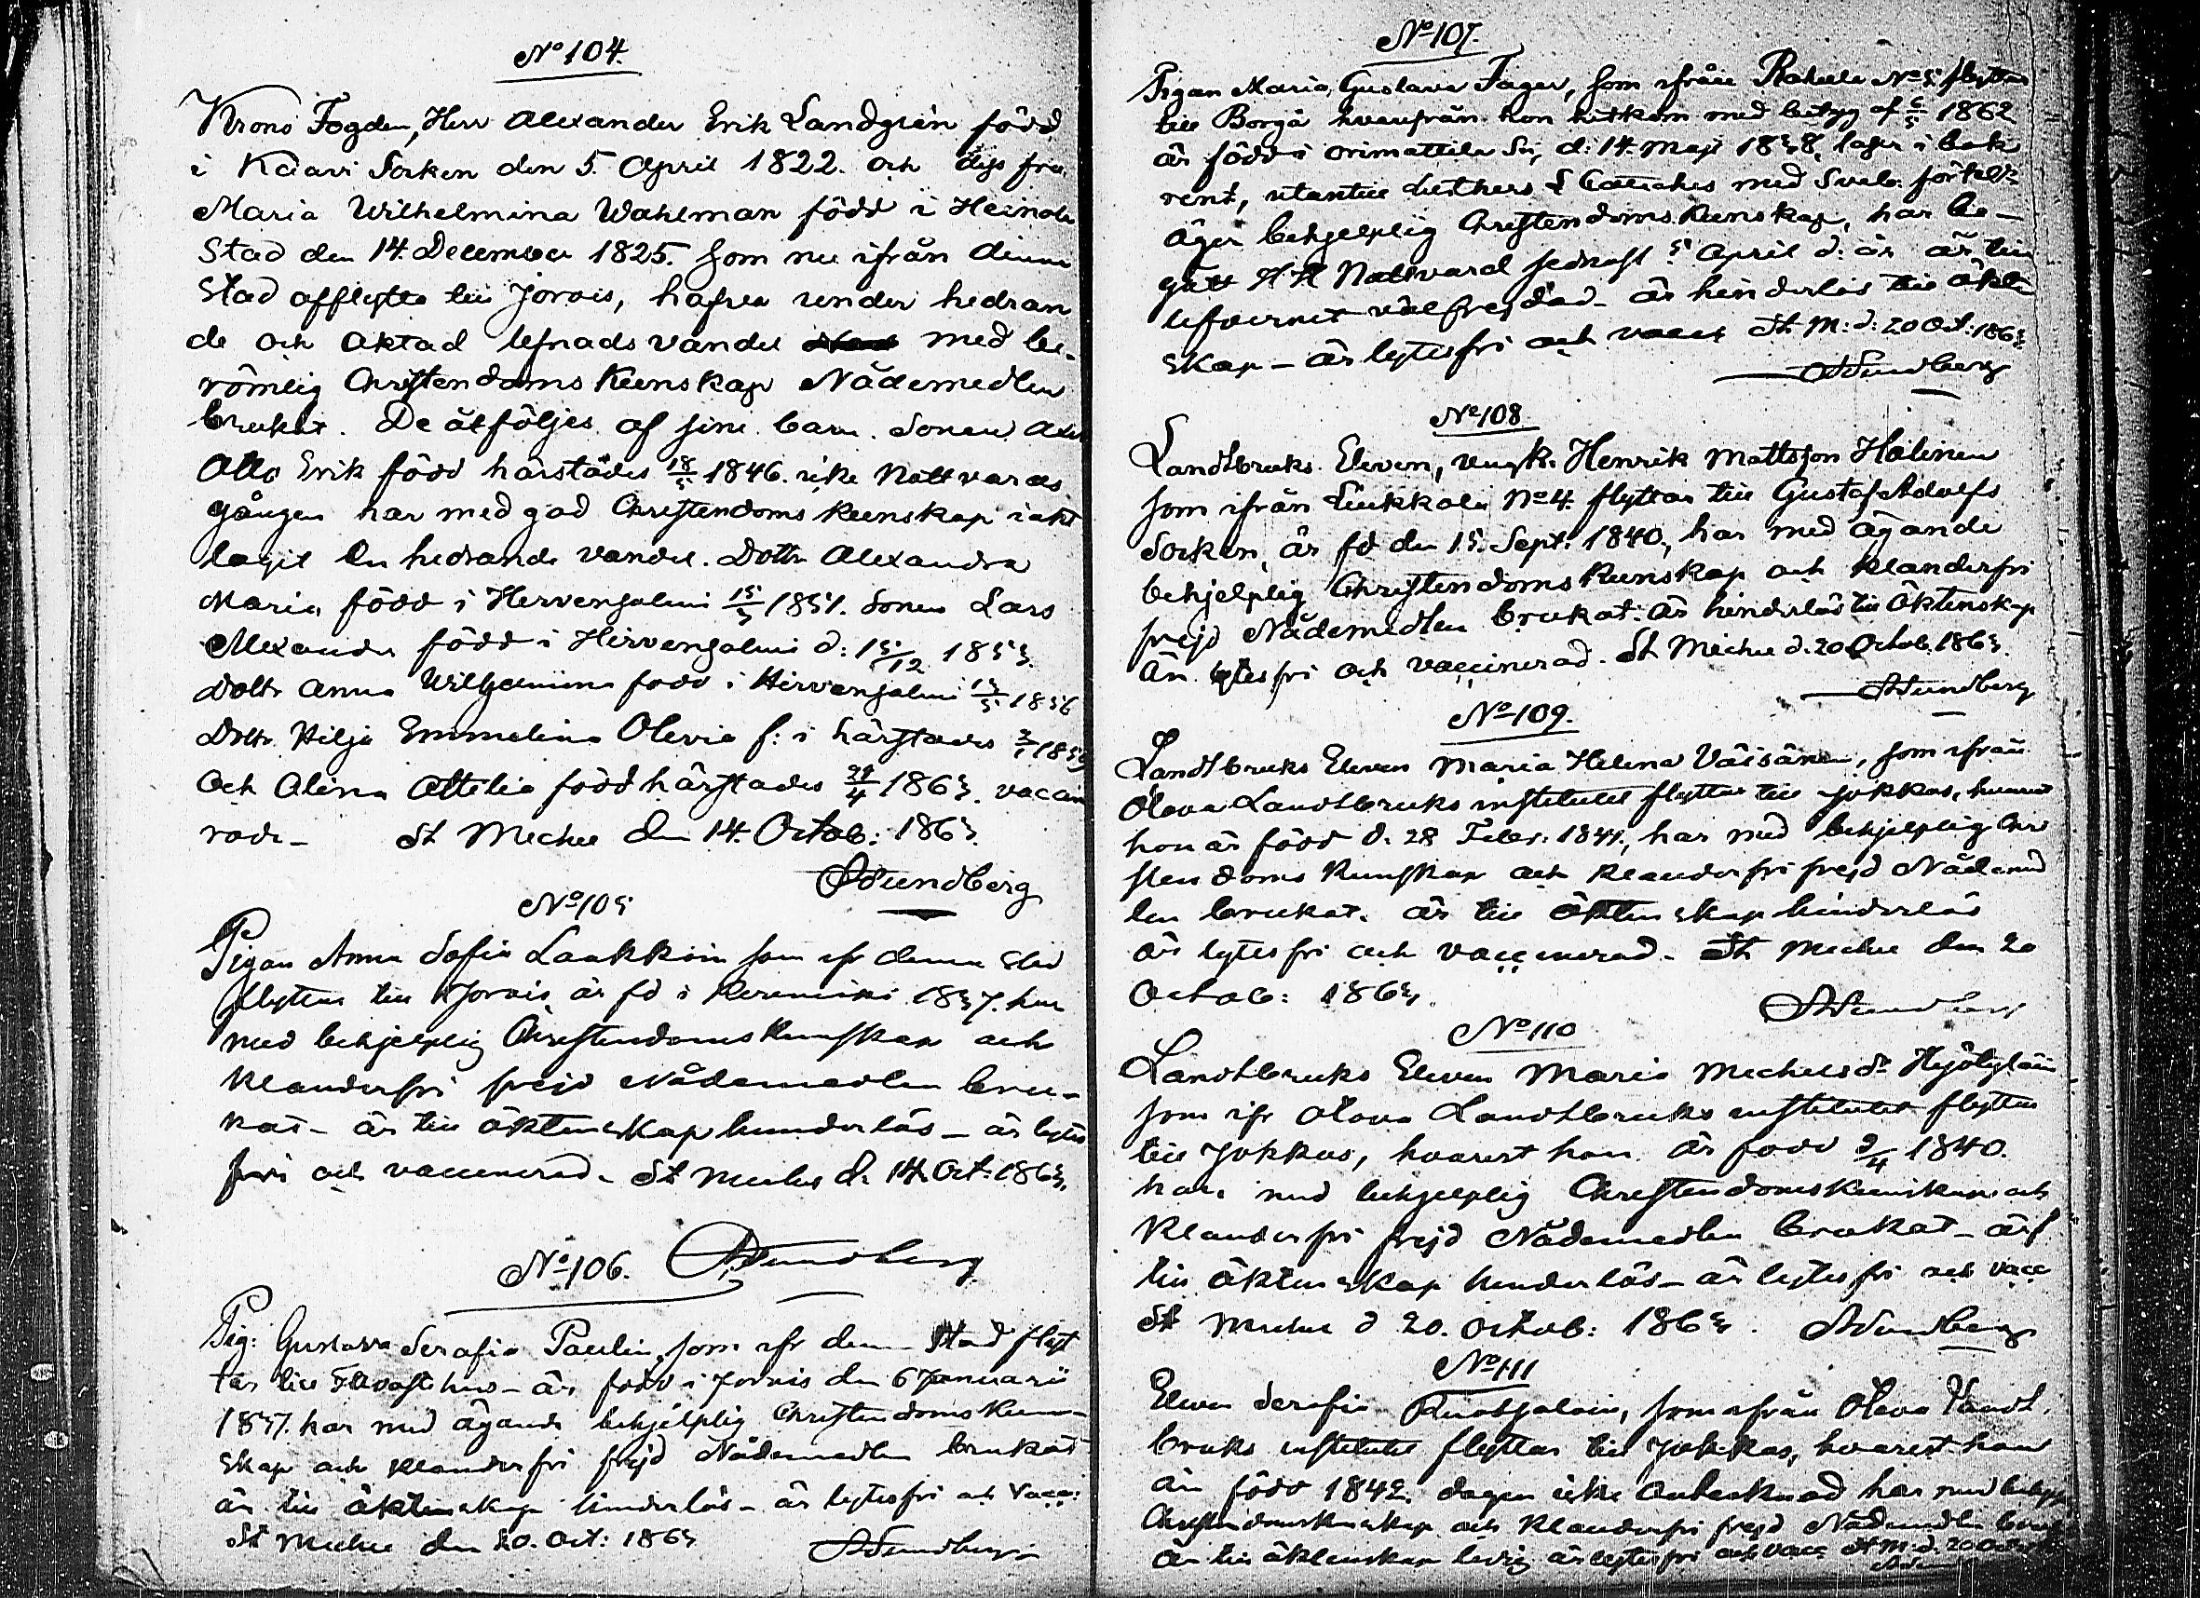 No 104.
Krono Fogden, Herr Alexander Erik Landgrén född
i Kaavi Socken den 5. April 1822. och dess fru
Maria Wilhelmina Wahlman född i Heinola
Stad den 14. December 1825. som nu ifrån denna
Stad afflytta till Jorois, hafva under hedran
de och aktad lefnads vandel med be-
römlig Christendoms Kunskap Nådemedlen
brukat. De åtföljes af sine barn. Sonen Axel
Otto Erik född härstädes 18/5 1846. icke Nattvards
gången har med god Christendoms kunskap iakt
tagit en hedrande vandel. Dottr Alexandra
Maria född i Hirvensalmi 15/3 1851. Sonen Lars
Alexander född i Hirvensalmi d: 15/12 1853.
Dottr Anna Wilhelmina född i Hirvensalmi 1856
Dottr Hilja Emmelina Olevia f: i härstädes 1859
och Alina Ottilia född härstades 29/4 1863. vaccine
rade - St Michel den 14. Octob: 1863.
ASundberg
No 105
Pigan Anna Sofia Laakkoin som ifr denna Stad
flyttar till Jorois är fd i Kerimäki 1837. har
med behjelplig Christendomskunskap och
Klanderfri frejd Nådemedlen bru-
kat - är till äktenskap hinderlös - är lytes
fri och vaccinerad - St Michel d. 14 Oct: 1863.
ASundberg
No 106.
Pig: Gustava Serafia Paulin, som ifr denna Stad flyt
tar till Tavastehus - är född i Jorois den 6 Januarii
1837. har med ägande behjelplig Christendoms kun-
skap och klanderfri frejd Nådemedlen brukat
är till äktenskap hinderlös - är lytesfri och Vacc:
St Michel den 20. Oct: 1863
ASundberg
No 107.
Pigan Maria Gustava Fager, som ifrån Rahula No 5 flyttar
till Borgå hvarifrån hon hitkom med betyg af 6/5 1862
är född i Orimattila Sn, d: 14. Maji 1838, läser i bok
rent, utantill Luthers Catechis med Sveb: förkl:
äger behjelplig Christendoms kunskap, har be-
gått H H Nattvard sednast 5 April d: år är till
lefvernet välfrejdad - är hinderlös till äkten
skap - är lytesfri och vacc St M: d: 20 Oct: 1863
ASundberg
No 108
Landtbruks Eleven, ungk. Henrik Mattsson Halinen
som ifrån Liukkola No 4. flyttar till Gustaf Adolfs
Socken, är fd den 15. Sept: 1840, har med ägande
behjelplig Christendoms Kunskap och klanderfri
frejd Nådemedlen brukat. är hinderlös till Äktenskap
är lytesfri och vaccinerad. St Michel d. 20 Octob. 1863.
ASundberg
No 109.
Landtbruks Eleven Maria Helena Väisänen, som ifrån
Otava Landtbruks institutet flyttar till Jokkas, hvarest
hon är född d. 28 Febr. 1841, har med behjelplig Chri
stendoms Kunskap och klanderfri frejd Nådemed
len brukat. är till Äktenskap hinderlös
är lytesfri och vaccinerad - St Michel den 20
Octob: 1863.
ASundberg
No 110
Landtbruks Eleven Maria Michelsdr Hyötyläin
som ifr Otava Landtbruks institutet flyttar
till Jokkas, hvarest hon är född 9/4 1840.
har med behjelplig Christendomskunskap och
Klanderfri frejd Nådemedlen brukat - är
till äktenskap hinderlös - är lytesfri och vacc
St Michel d 20. Octob: 1863. ASundberg
No 111
Eleven Serafia som ifrån Otava Landt
bruks institutet flyttar till Jokkas, hvarest hon
är född 1842. dagen icke antecknad har med behjelp
Christendomskunskap och klanderfri frejd Nådemedlen bruk
är till äktenskap ledig är lytesfri och vacc St M: d. 20 Oct